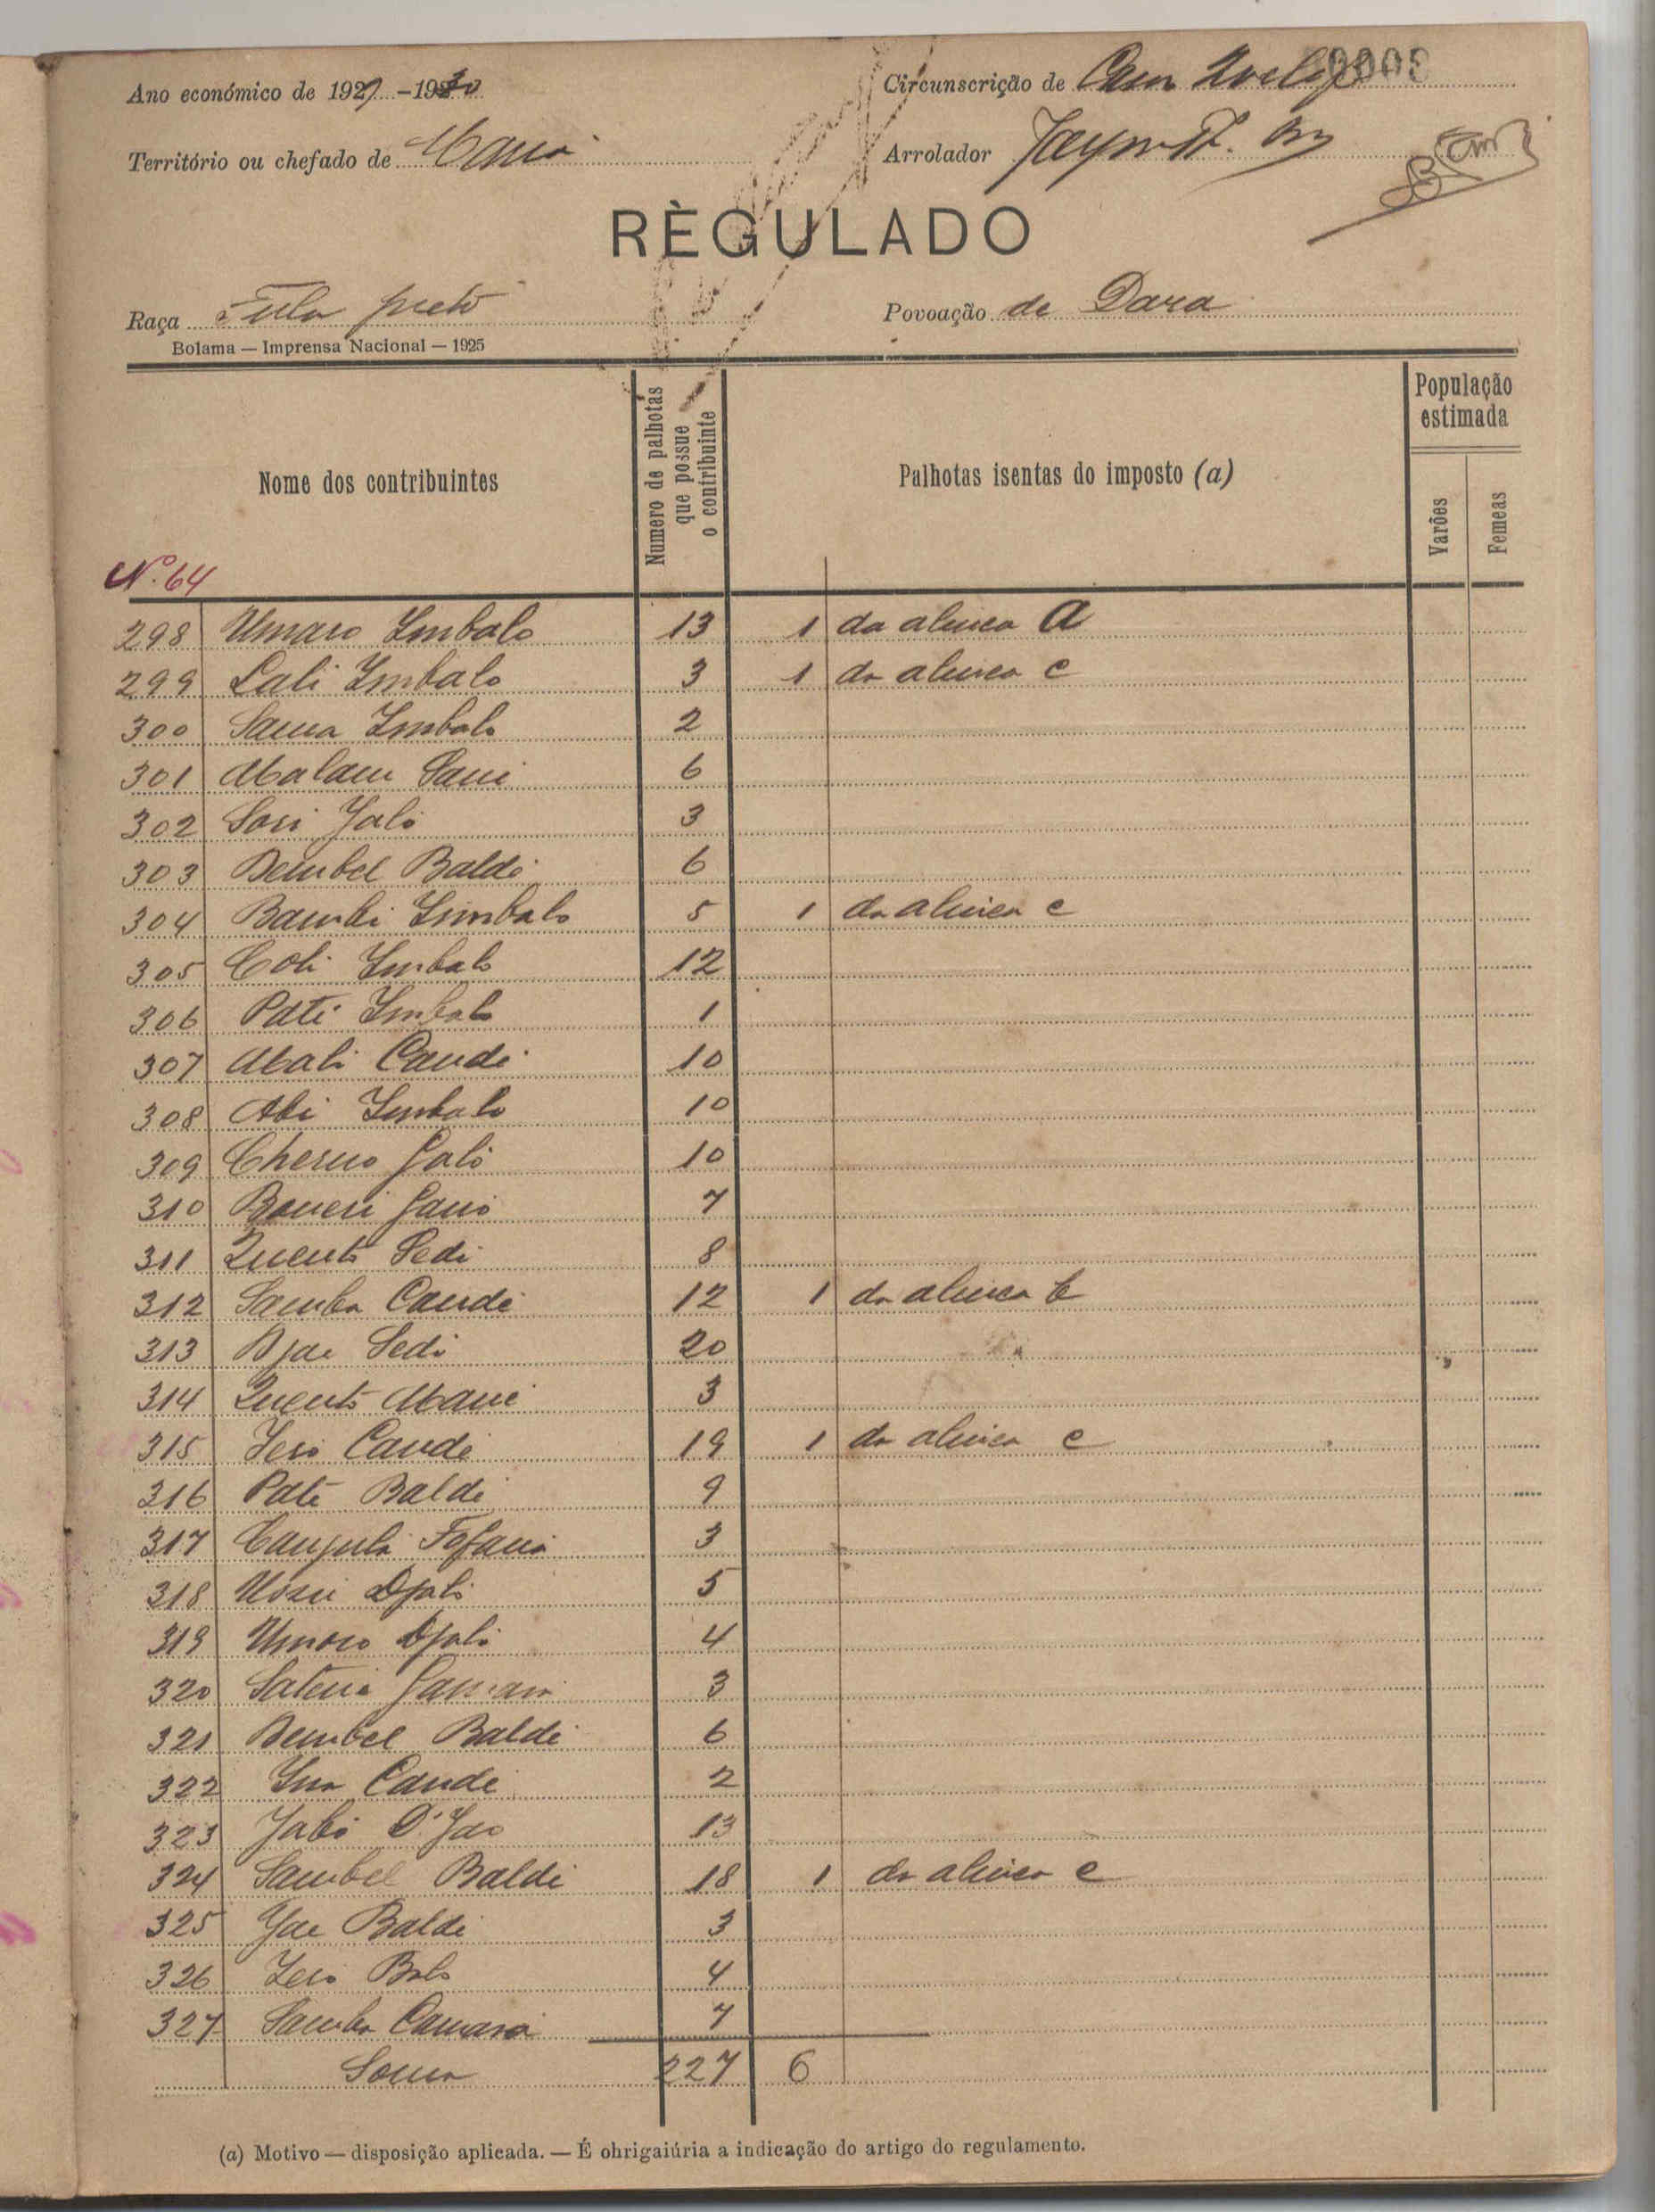 Ano económico de 1929-1930
Circunscrição de
Território ou chefado de Maná
Arrolador
RÈGULADO
Raça Fula preto
Povoação de Dara
Bolama — Imprensa Nacional — 1925
Nome dos contribuintes
Numero de palhotas que possue o contribuinte
Palhotas isentas do imposto (a)
População estimada
Varões
Femeas
Nº 64
298 Umaro Embalo 13 1 da alinea A
299 Lali Embalo 3 1 da alinea c
300 Sauca Embalo 2
301 Malam Sani 6
302 Sori Jaló 3
303 Dembel Baldé 6
304 Bambi Embalo 5 1 da alinea c
305 Coli Embalo 12
306 Paté Embalo 1
307 Mali Candé 10
308 Abi Embalo 10
309 Cherno Jaló 10
310 7
311 Quentó Sedi 8
312 Samba Candé 12 1 da alinea b
313 Djae Sedi 20
314 Quentó Mané 3
315 Iero Candé 19 1 da alinea c
316 Paté Baldé 9
317 Fofaná 3
318 Djaló 5
319 Umaro Djaló 4
320 3
321 Dembel Baldé 6
322 Candé 2
323 13
324 Sambel Baldé 18 1 da alinea c
325 Baldé 3
326 4
327 Samba Camará 7
Soma 227 6
(a) Motivo — disposição aplicada. — É ohrigaiúria a indicação do artigo do regulamento.